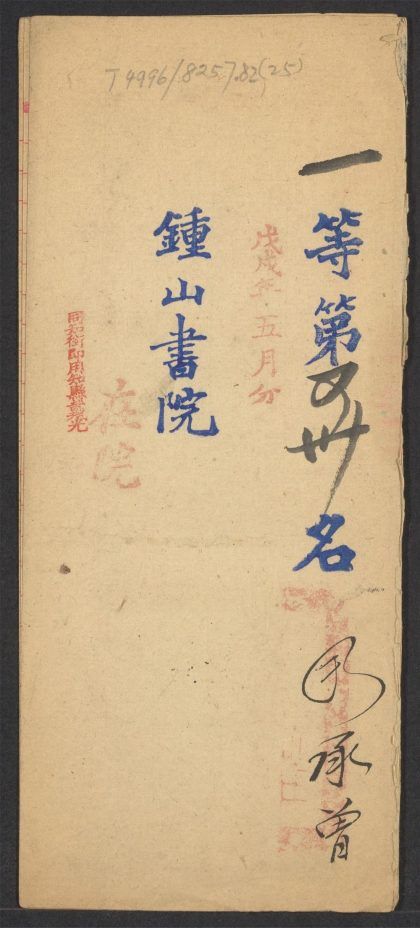 T 4996/8257.82(25)
一等第名
承曾
戊戌年五月分
鍾山書院
在院
同知銜即用知縣光